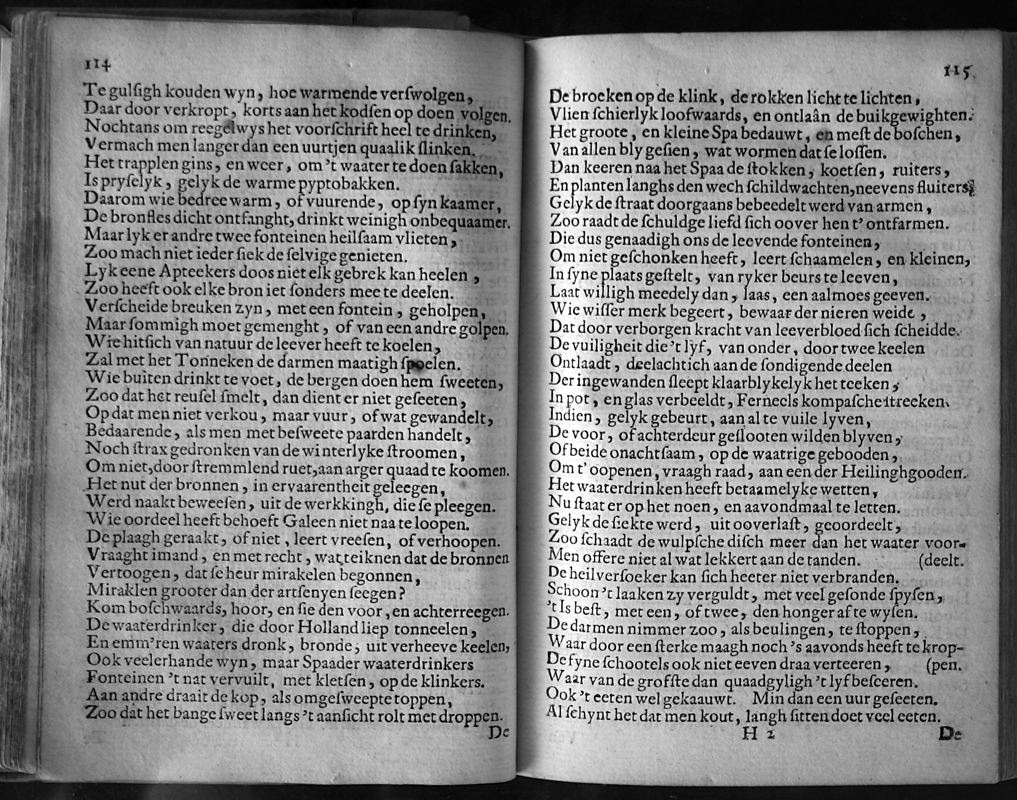 114
Te gulſigh kouden wyn, hoe warmende verſwolgen,
Daar door verkropt, korts aan het kodſen op doen volgen.
Nochtans om reegelwys het voorſchrift heel te drinken,
Vermach men langer dan een uurtjen quaalik ſlinken.
Het trapplen gins, en weer, om 't waater te doen ſakken,
Is pryſelyk, gelyk de warme pyptobakken.
Daarom wie bedree warm, of vuurende, op ſyn kaamer,
De bronfles dicht ontfanght, drinkt weinigh onbequaamer.
Maar lyk er andre twee fonteinen heilſaam vlieten,
Zoo mach niet ieder ſiek de ſelvige genieten.
Lyk eene Apteekers doos niet elk gebrek kan heelen,
Zoo heeft ook elke bron iet ſonders mee te deelen.
Verſcheide breuken zyn, met een fontein, geholpen,
Maar ſommigh moet gemenght, of van een andre golpen.
Wie hitſich van natuur de leever heeft te koelen,
Zal met het Tonneken de darmen maatigh ſpoelen.
Wie buiten drinkt te voet, de bergen doen hem ſweeten,
Zoo dat het reuſel ſmelt, dan dient er niet geſeeten,
Op dat men niet verkou, maar vuur, of wat gewandelt,
Bedaarende, als men met beſweete paarden handelt,
Noch ſtrax gedronken van de winterlyke ſtroomen,
Om niet, door ſtremmlend ruet, aan arger quaad te koomen.
Het nut der bronnen, in ervaarentheit geleegen,
Werd naakt beweeſen, uit de werkkingh, die ſe pleegen.
Wie oordeel heeft behoeft Galeen niet naa te loopen.
De plaagh geraakt, of niet, leert vreeſen, of verhoopen.
Vraaght imand, en met recht, wat teiknen dat de bronnen
Vertoogen, dat ſe heur mirakelen begonnen,
Miraklen grooter dan der artſenyen ſeegen?
Kom boſchwaards, hoor, en ſie den voor, en achterreegen.
De waaterdrinker, die door Holland liep tonneelen,
En emm'ren waaters dronk, bronde, uit verheeve keelen,
Ook veelerhande wyn, maar Spaader waaterdrinkers
Fonteinen 't nat vervuilt, met kletſen, op de klinkers.
Aan andre draait de kop, als omgeſweepte toppen,
Zoo dat het bange ſweet langs 't aanſicht rolt met droppen.
De
115
De broeken op de klink, de rokken licht te lichten,
Vlien ſchierlyk loofwaards, en ontlaân de buikgewighten.
Het groote, en kleine Spa bedauwt, en meſt de boſchen,
Van allen bly geſien, wat wormen dat ſe loſſen.
Dan keeren naa het Spaa de ſtokken, koetſen, ruiters,
En planten langhs den wech ſchildwachten, neevens fluiters;
Gelyk de ſtraat doorgaans bebeedelt werd van armen,
Zoo raadt de ſchuldge liefd ſich oover hen t' ontfarmen.
Die dus genaadigh ons de leevende fonteinen,
Om niet geſchonken heeft, leert ſchaamelen, en kleinen,
In ſyne plaats geſtelt, van ryker beurs te leeven,
Laat willigh meedely dan, laas, een aalmoes geeven.
Wie wiſſer merk begeert, bewaar der nieren weide,
Dat door verborgen kracht van leeverbloed ſich ſcheidde.
De vuiligheit die 't lyf, van onder, door twee keelen
Ontlaadt, deelachtich aan de ſondigende deelen
Der ingewanden ſleept klaarblykelyk het teeken,
In pot, en glas verbeeldt, Ferneels kompaſcheſtreeken.
Indien, gelyk gebeurt, aan al te vuile lyven,
De voor, of achterdeur geſlooten wilden blyven,
Of beide onachtſaam, op de waatrige gebooden,
Om t' oopenen, vraagh raad, aan een der Heilinghgooden.
Het waaterdrinken heeft betaamelyke wetten,
Nu ſtaat er op het noen, en aavondmaal te letten.
Gelyk de ſiekte werd, uit ooverlaſt, geoordeelt,
Zoo ſchaadt de wulpſche diſch meer dan het waater voor-
Men offere niet al wat lekkert aan de tanden. (deelt.
De heilverſoeker kan ſich heeter niet verbranden.
Schoon 't laaken zy verguldt, met veel geſonde ſpyſen,
't Is beſt, met een, of twee, den honger af te wyſen.
De darmen nimmer zoo, als beulingen, te ſtoppen,
Waar door een ſterke maagh noch 's aavonds heeft te krop-
De fyne ſchootels ook niet eeven draa verteeren, (pen.
Waar van de grofſte dan quaadgyligh 't lyf beſceren.
Ook 't eeten wel gekaauwt. Min dan een uur geſeeten.
Al ſchynt het dat men kout, langh ſitten doet veel eeten.
H 2
De